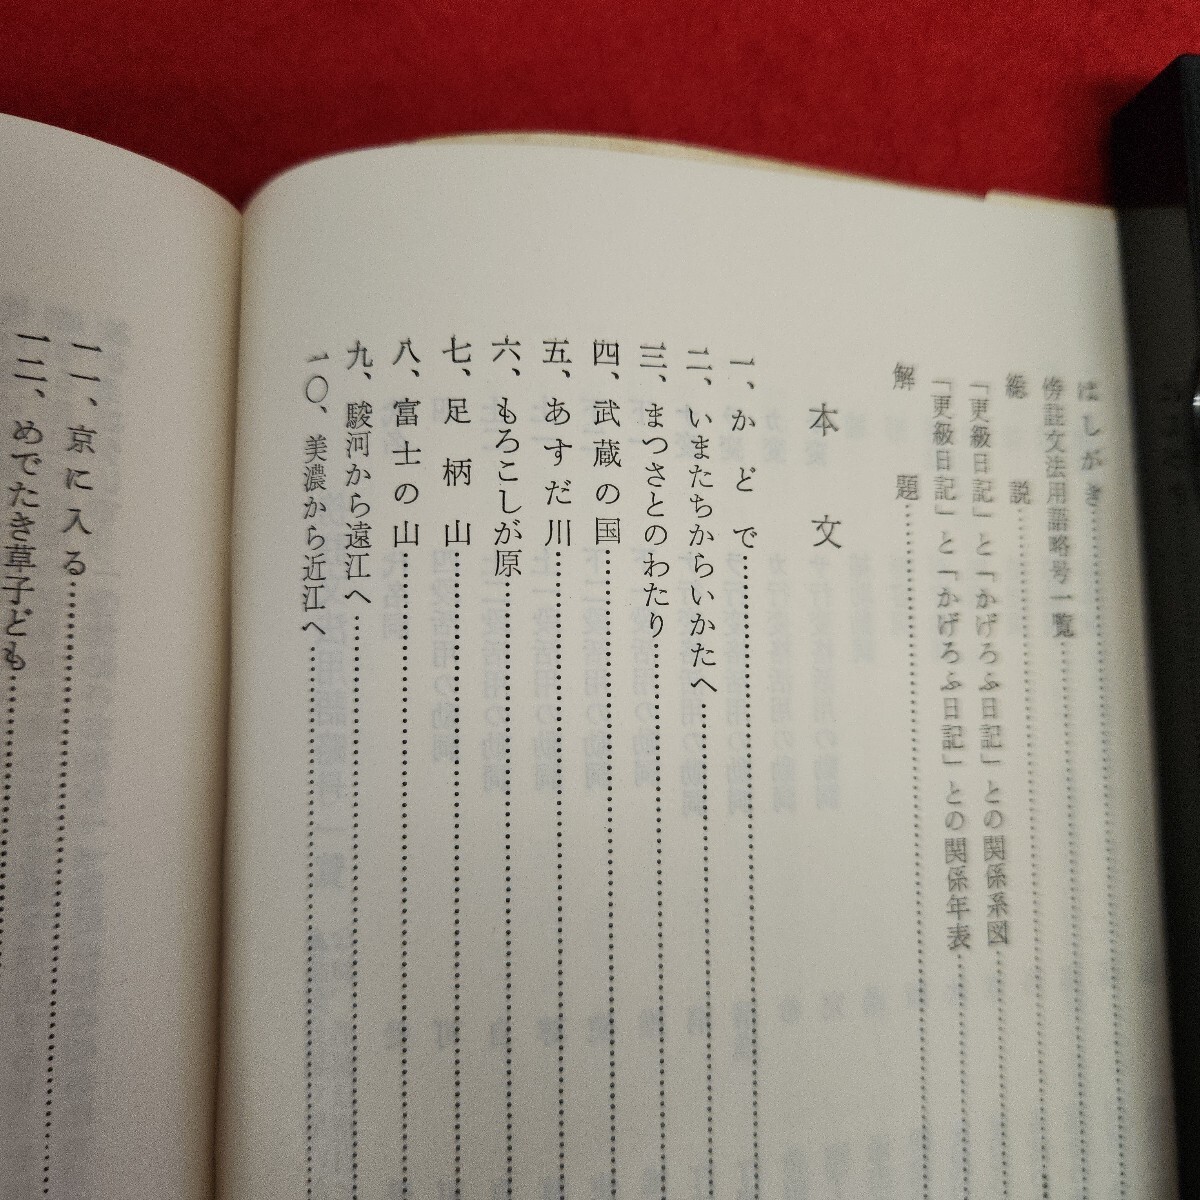 はしがき
傍註文法用語略号一覧
総説
「更級日記」と「かげろふ日記」との関係系図
「更級日記」と「かげろふ日記」との関係年表
解題
本文
一、かどで
二、いまたちからいかたへ
三、まつさとのわたり
四、武蔵の国
五、あすだ川
六、もろこしが原
七、足柄山
八、富士の山
九、駿河から遠江へ
一〇、美濃から近江へ
一一、京に入る
一二、めでたき草子ども